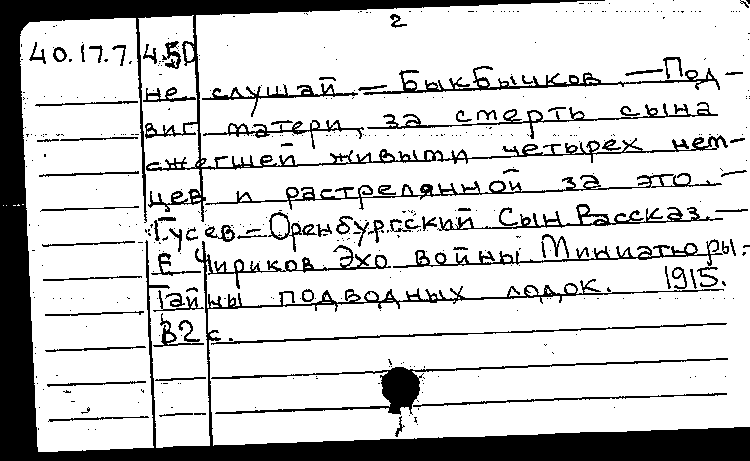 2
40.17.7.450
не слушай. — БыкБычков. — Под-
виг матери, за смерть сына
сжегшей живыми четырех нем-
цев и растрелянной за это. —
Гусев-Оренбургский Сын Рассказ. —
Е Чириков. Эхо войны Миниатюры. -
Тайны подводных лодок. 1915.
32 с.